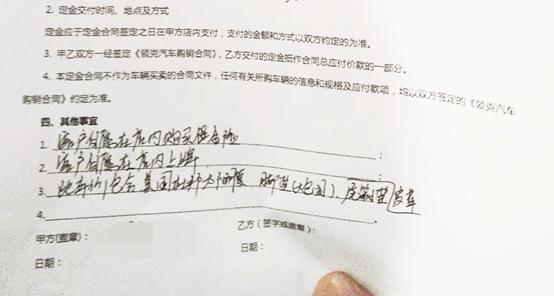 2. 定金交付时间、地点及方式
定金应于定金合同签定之日在甲方店内支付，支付的金额和方式以双方约定的为准。
3. 甲乙双方一经签定《领克汽车购销合同》，乙方交付的定金抵作合同总应付价款的一部分。
4. 本定金合同不作为车辆买卖的合同文件，任何有关所购车辆的信息和规格及应付款项，均以双方签定的《领克汽车
购销合同》约定为准。
四、其他事宜
1. 客户自愿在店内购买保险；
2. 客户自愿在店内上牌；
3. 此车价包含美国杜邦太阳膜 脚垫（大包围）、尾箱垫
4.
甲方(盖章)：
乙方（签字或盖章）：
日期：
日期：